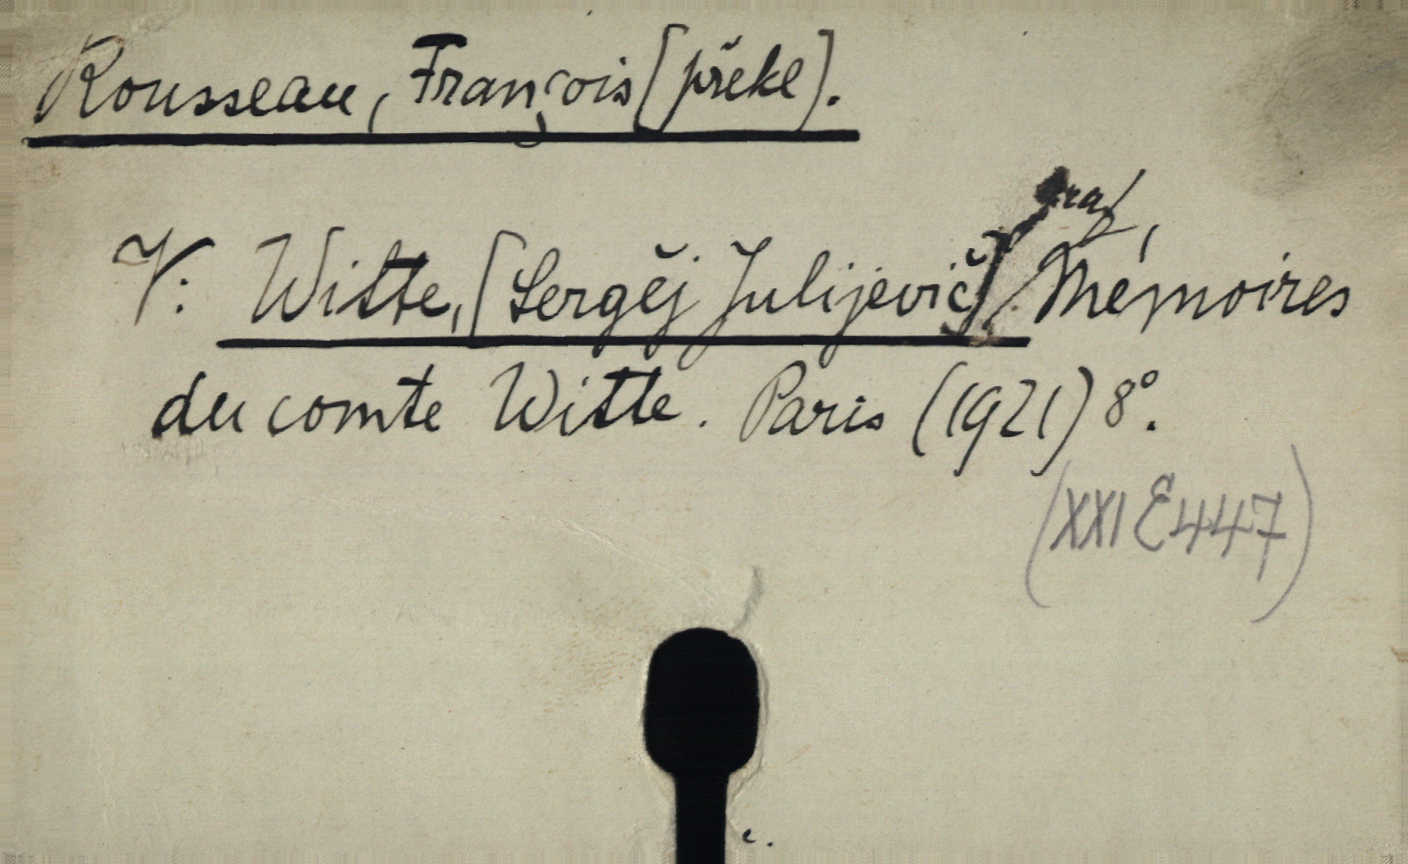 Rousseau, François [překl].
V: Witte, [Sergěj Julijevič] Mémoires
du comte Witte. Paris (1921) 8°.
(XXI E 447)